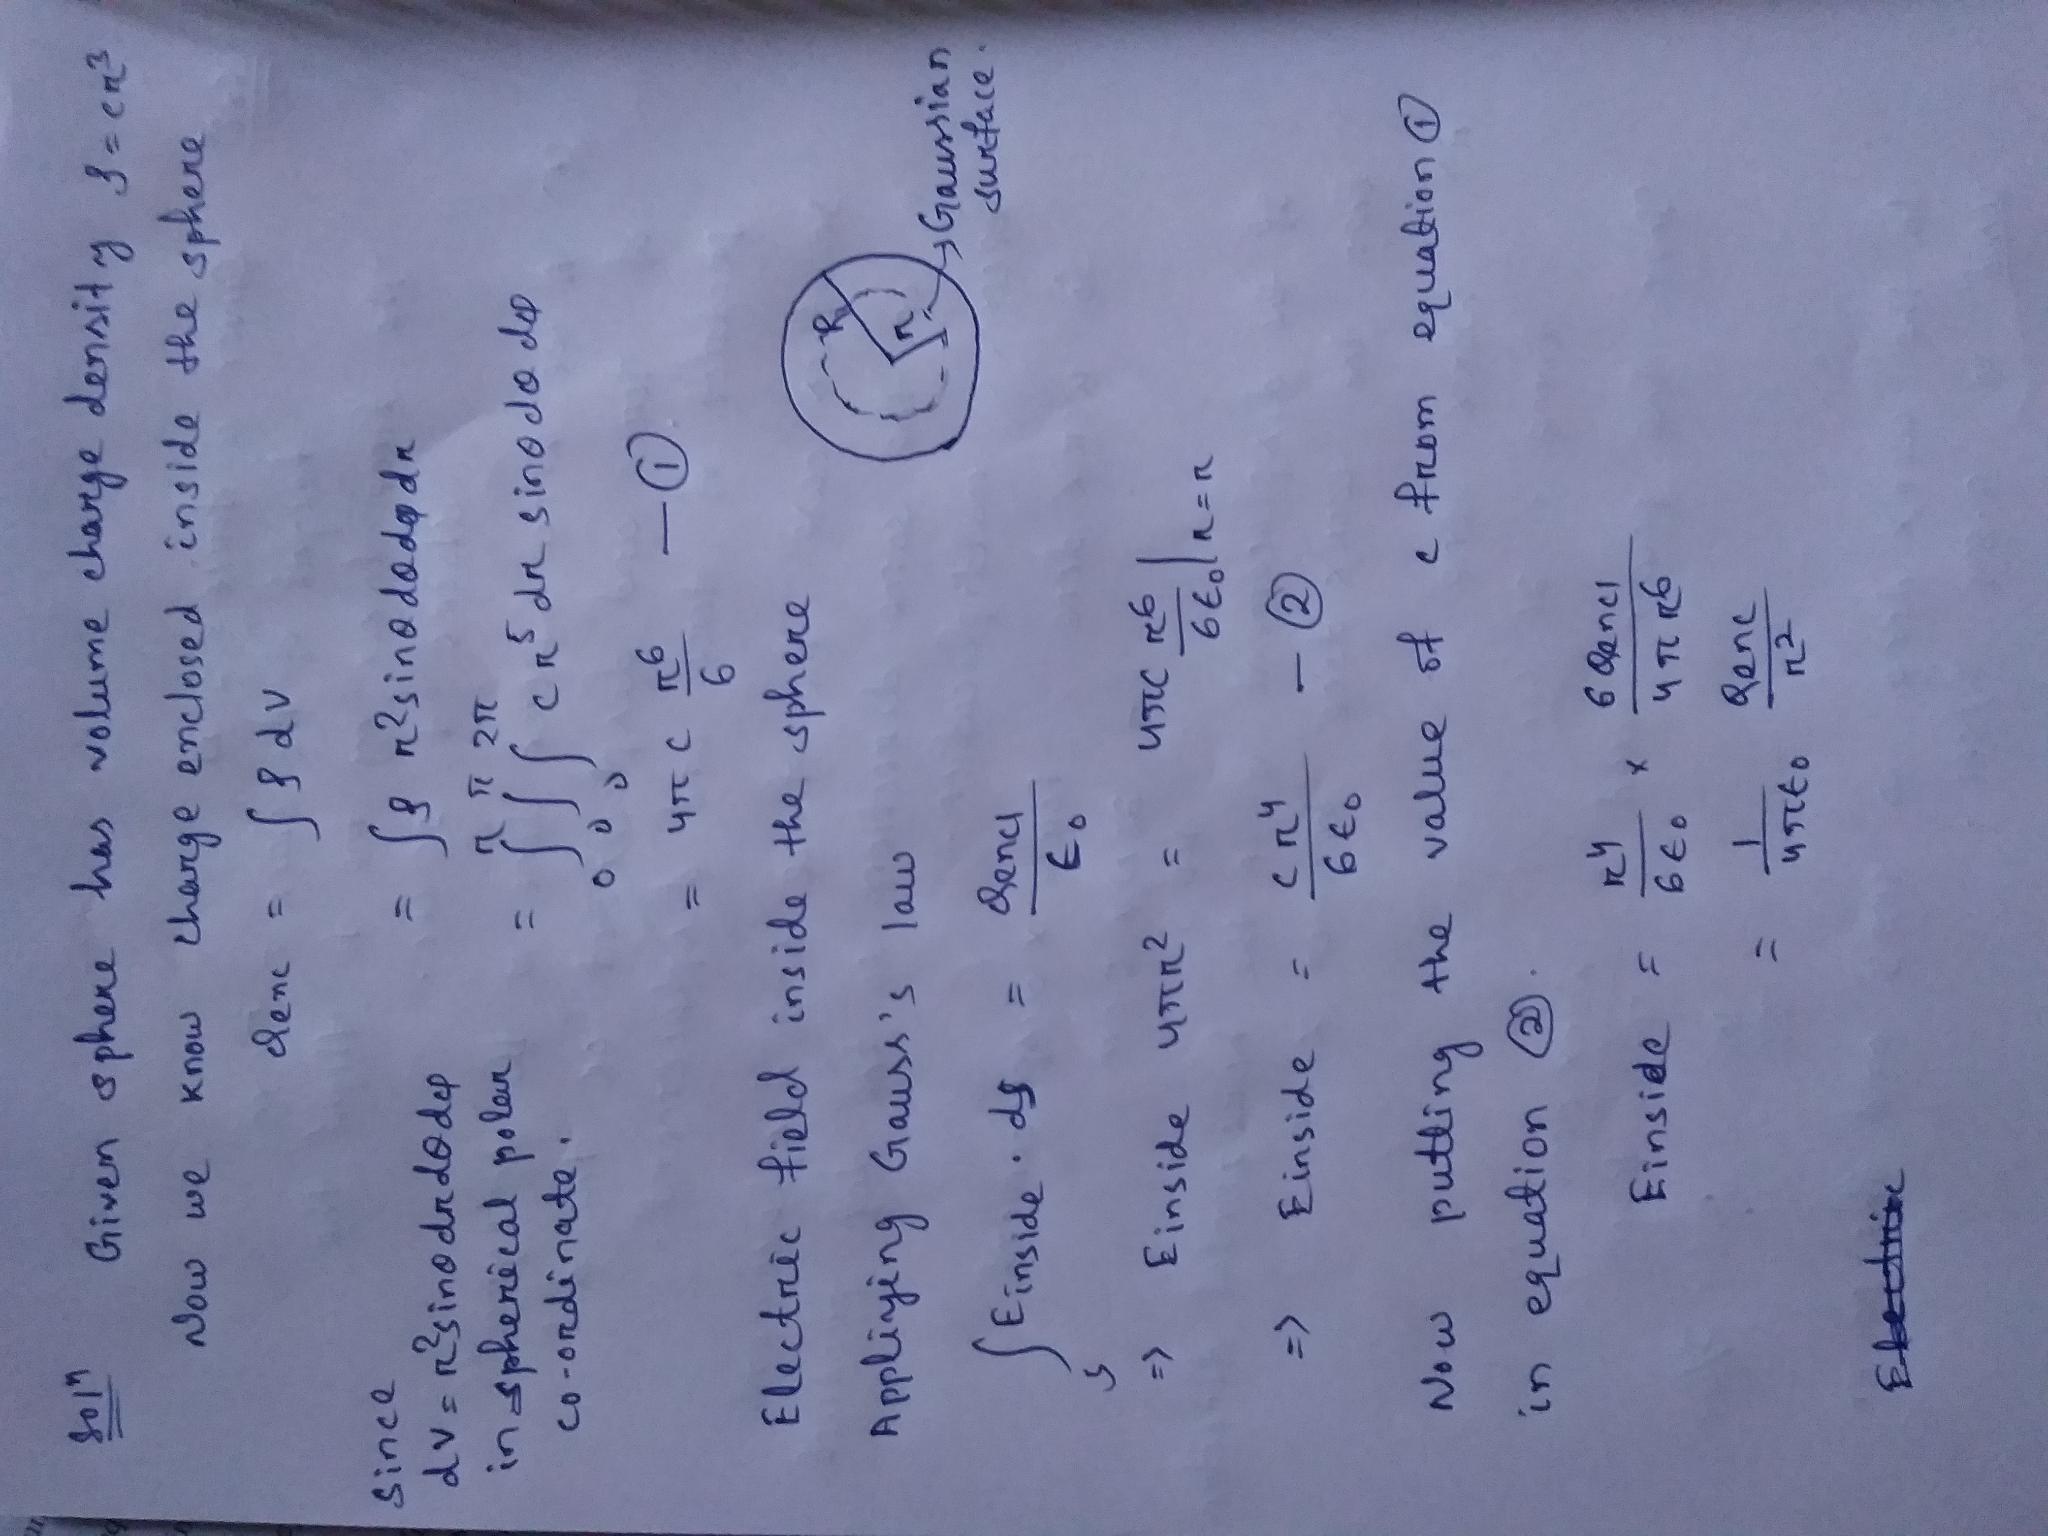 Solⁿ Given sphere has volume charge density ρ = cr³
Now we know charge enclosed inside the sphere
Qenc = ∫ρ dv
Since
dv = r²sinθdrdθdφ
in spherical polar
co-ordinate.
= ∫ρ r²sinθdθdφdr
= ∫₀^r ∫₀^π ∫₀^2π c r⁵ dr sinθ dθ dφ
= 4πc r⁶/6 — ①
Electric field inside the sphere
Appliying Gauss's law
R
r
Gaussian
surface.
∫s Einside . ds = Qencl/ε₀
=> Einside 4πr² = 4πc r⁶/6ε₀ | r=r
=> Einside = cr⁴/6ε₀ — ②
Now putting the value of c from equation ①
in equation ②.
Einside = r⁴/6ε₀ × 6Qencl/4πr⁶
= 1/4πε₀ Qenc/r²
Electric